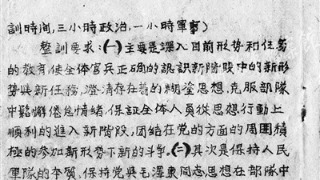 訓時间,三小時政治,一小時軍事)
整訓要求:㈠主要是深入目前形勢和任务
的教育使全体官兵正确的認識新階段中的新形
勢與新任務,澄清存在着的糊塗思想,克服部隊
中鬆懈倦怠情緒,保証全体人員從思想行動上
順利的進入新階段,团結在党的方面的周圍積
極的参加新形勢下新的斗爭。㈡其次是保持人民
軍隊的本質,保持党與毛澤東同志思想在部隊中